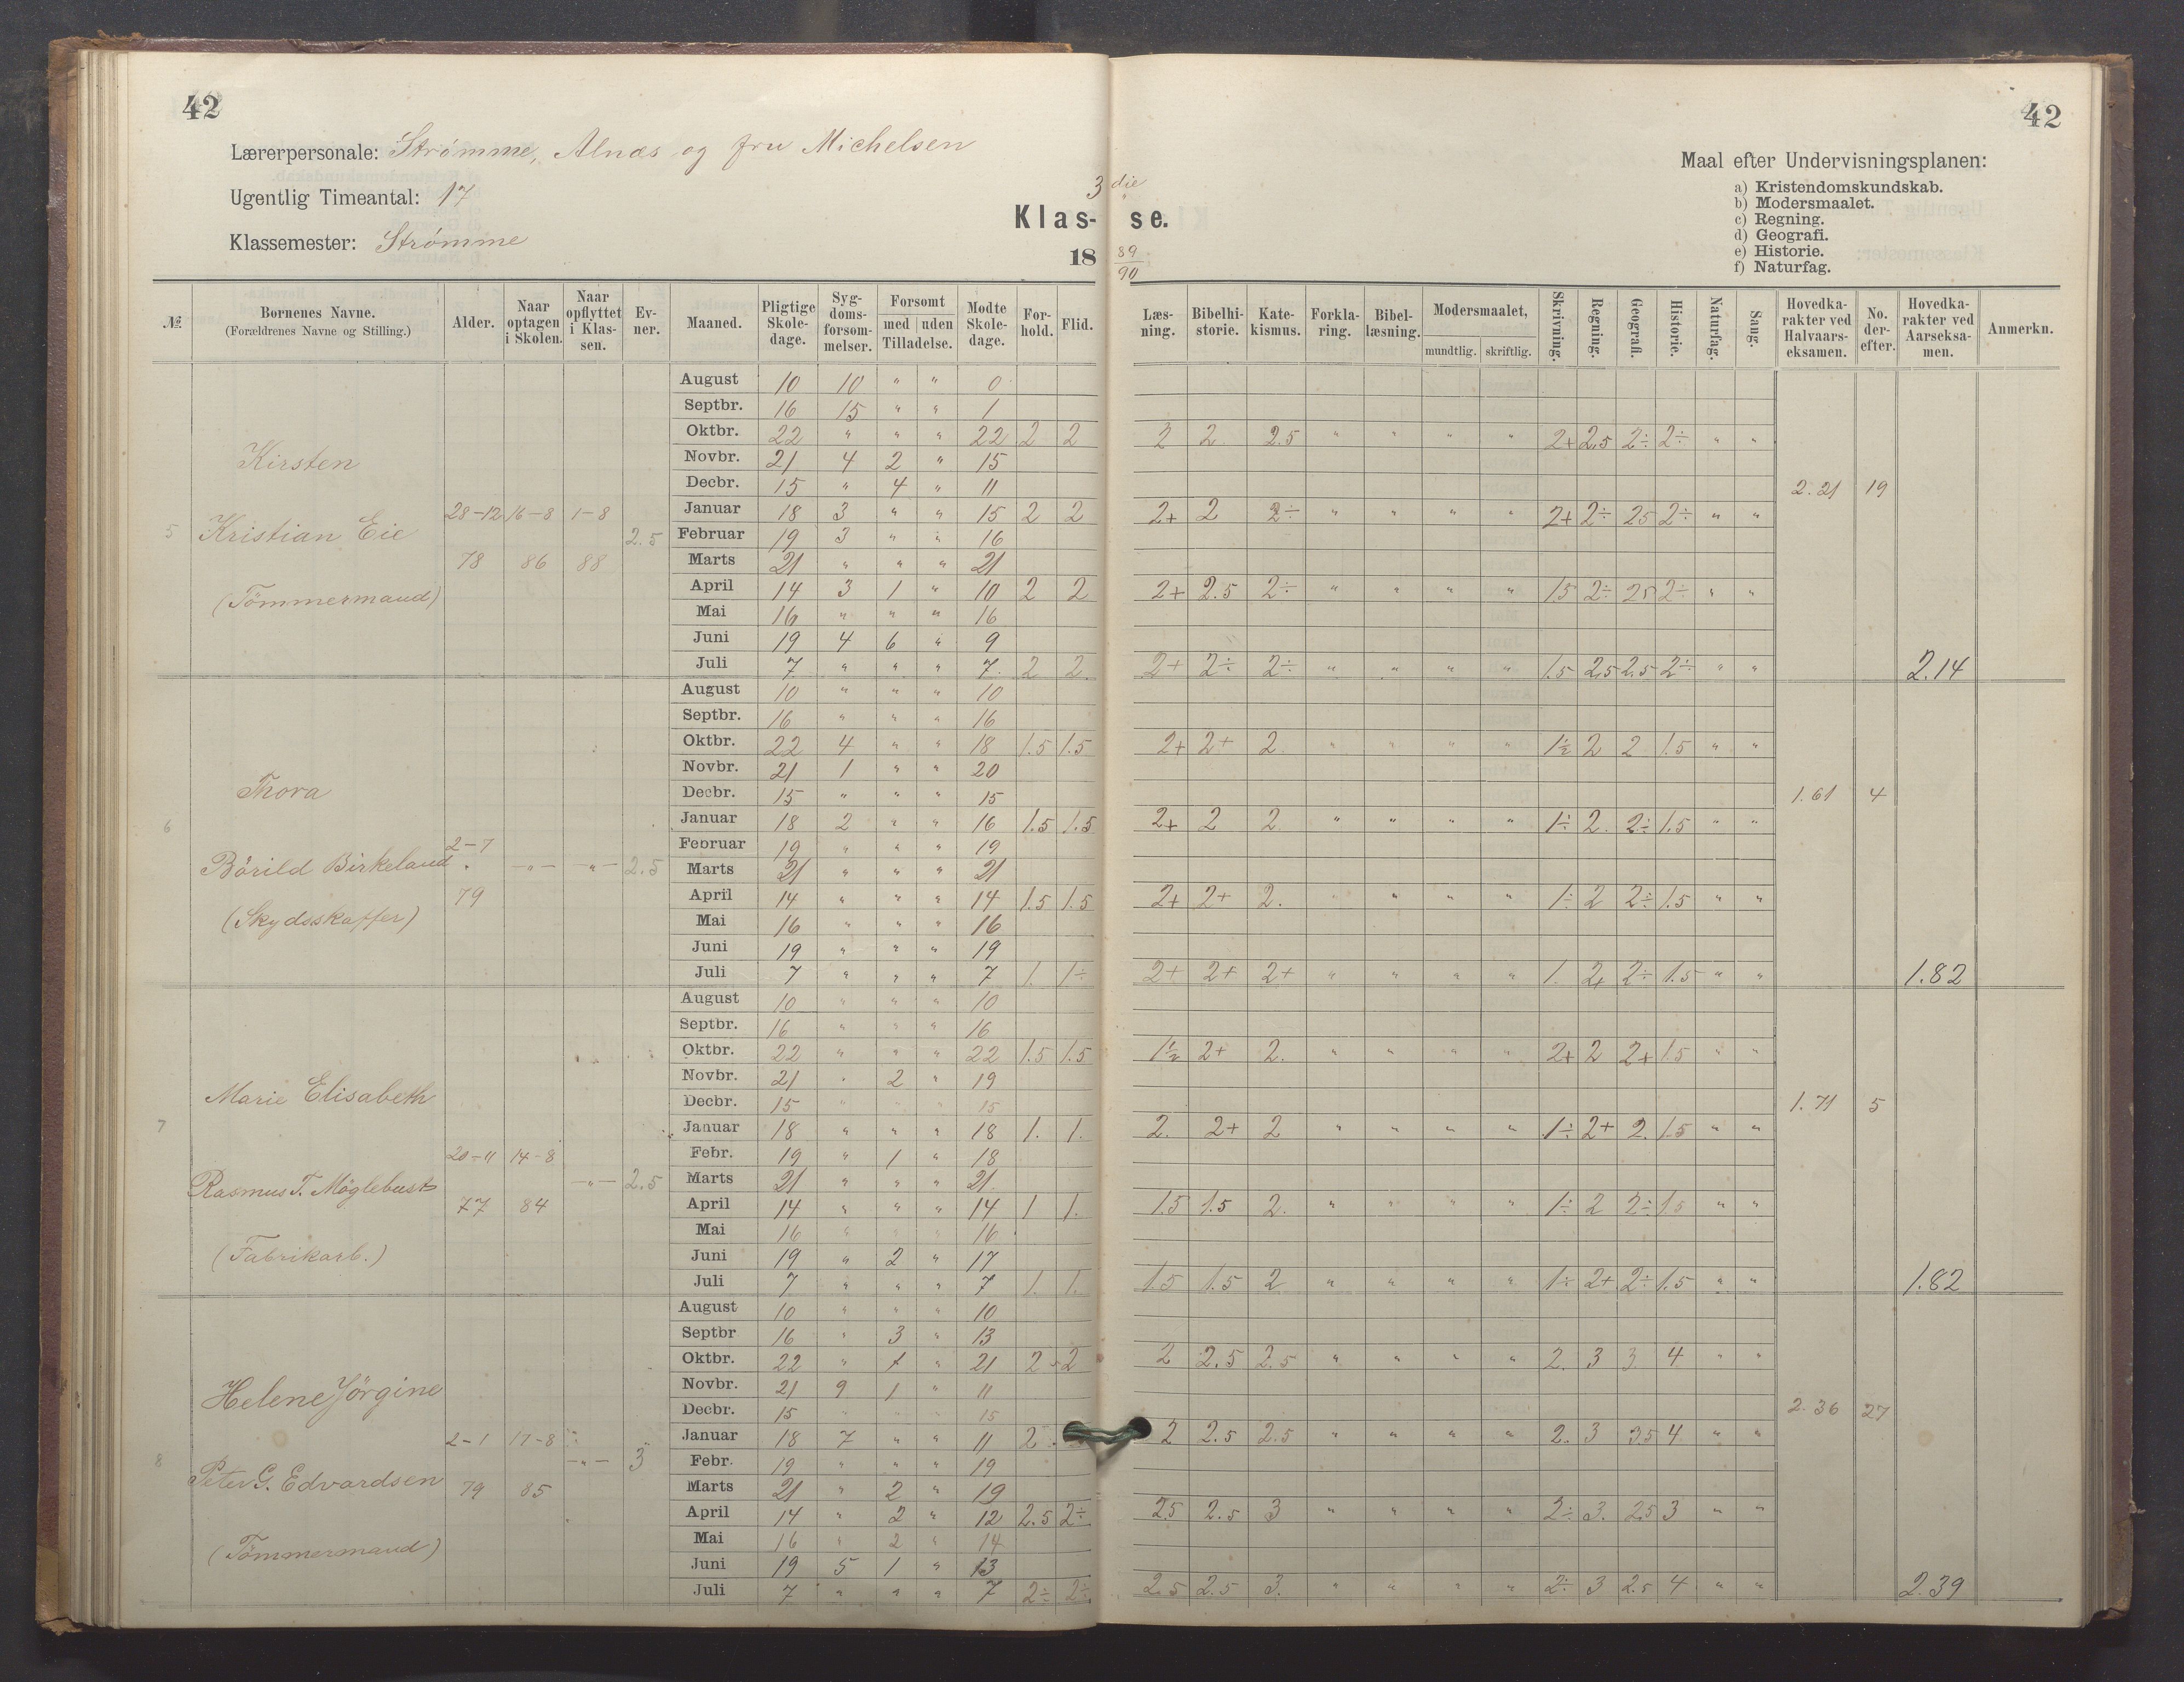 42
42
Lærerpersonale: Strømme, Alnæs og fru Michelsen
Ugentlig Timeantal: 17
Klassemester: Strømme
3die
Klas- se.
18 89/90
Maal efter Undervisningsplanen:
a) Kristendomskundskab.
b) Modersmaalet.
c) Regning.
d) Geografi.
e) Historie.
f) Naturfag.
№ Børnenes Navne. (Forældrenes Navne og Stilling.) Alder. Naar optagen i Skolen. Naar opflyttet i Klassen. Evner. Maaned. Pligtige Skoledage. Sygdomsforsommelser. Forsomt med uden Tilladelse. Mødte Skoledage. Forhold. Flid. Læsning. Bibelhistorie. Katekismus. Forklaring. Bibellæsning. Modersmaalet, mundtlig. skriftlig. Skrivning. Regning. Geografi. Historie. Naturfag. Sang. Hovedkarakter ved Halvaarseksamen. No. derefter. Hovedkarakter ved Aarseksamen. Anmerkn.
5 Kirsten
Kristian Eie
(Tömmermand)
28-12 78 16-8 86 1-8 88 2.5
August 10 10 " " 0
Septbr. 16 15 " " 1
Oktbr. 22 " " " 22 2 2 2 2 2.5 " " " " 2+ 2.5 2÷ 2÷ " "
Novbr. 21 4 2 " 15
Decbr. 15 " 4 " 11
2.21 19
Januar 18 3 " " 15 2 2 2+ 2 2÷ " " " " 2+ 2÷ 25 2÷ " "
Februar 19 3 " " 16
Marts 21 " " " 21
April 14 3 1 " 10 2 2 2+ 2.5 2÷ " " " " 15 2÷ 25 2÷ " "
Mai 16 " " " 16
Juni 19 4 6 " 9
Juli 7 " " " 7. 2 2. 2+ 2÷ 2÷ " " " " 1.5 2.5 2.5 2÷ " " 2.14
6 Thora
Börild Birkeland
(Skydsskaffer)
2-7 79 -"- -"- 2.5
August 10 " " " 10
Septbr. 16 " " " 16
Oktbr. 22 4 " " 18 1.5 1.5 2+ 2+ 2 " " " " 1½ 2 2 1.5 " "
Novbr. 21 1 " " 20
Decbr. 15 " " " 15
1.61 4
Januar 18 2 " " 16 1.5 1.5 2+ 2 2 " " " " 1÷ 2. 2÷ 1.5 " "
Februar 19 " " " 19
Marts 21 " " " 21
April 14 " " " 14 1.5 1.5 2+ 2+ 2. " " " " 1÷ 2 2÷ 1.5 " "
Mai 16 " " " 16
Juni 19 " " " 19
Juli 7 " " " 7 1. 1÷ 2+ 2+ 2+ " " " " 1. 2+ 2÷ 1.5 " " 1.82
7 Marie Elisabeth
Rasmus T. Möglebust
(Fabrikarb.)
20-11 77 14-8 84 -"- 2.5
August 10 " " " 10
Septbr. 16 " " " 16
Oktbr. 22 " " " 22 1.5 1.5 1½ 2+ 2. " " " " 2+ 2 2+ 1.5 " "
Novbr. 21 " 2 " 19
Decbr. 15 " " " 15
1.71 5
Januar 18 " " " 18 1. 1. 2. 2+ 2 " " " " 1÷ 2+ 2. 1.5 " "
Febr. 19 " 1 " 18
Marts 21 " " " 21.
April 14 " " " 14 1 1. 1.5 1.5 2. " " " " 1÷ 2 2÷ 1.5 " "
Mai 16 " " " 16
Juni 19 " 2 " 17
Juli 7 " " " 7 1. 1. 1.5 1.5 2. " " " " 1÷ 2+ 2÷ 1.5 " " 1.82
8 Helene Jörgine
Peter G. Edvardsen
(Tömmermand)
2-1 79 17-8 85 -"- 3
August 10 " " " 10
Septbr 16 " 3 " 13
Oktbr. 22 " 1 " 21 2 2 2 2.5 2.5 " " " " 2. 3 3 4 " "
Novbr. 21 9 1 " 11
Decbr. 15 " " " 15
2.36 27
Januar 18 7 " " 11 2 2 2.5 2.5 " " " " 2. 3 3.5 4 " "
Febr. 19 " " " 19
Marts 21 " 2 " 19
April 14 " 2 " 12 2.5 2÷ 2.5 2.5 3 " " " " 2÷ 3. 2.5 3 " "
Mai 16 " 2 " 14
Juni 19 5 1 " 13
Juli 7 " " " 7 2÷ 2÷ 2.5 2.5 3. " " " " 2÷ 3 2.5 4 " " 2.39